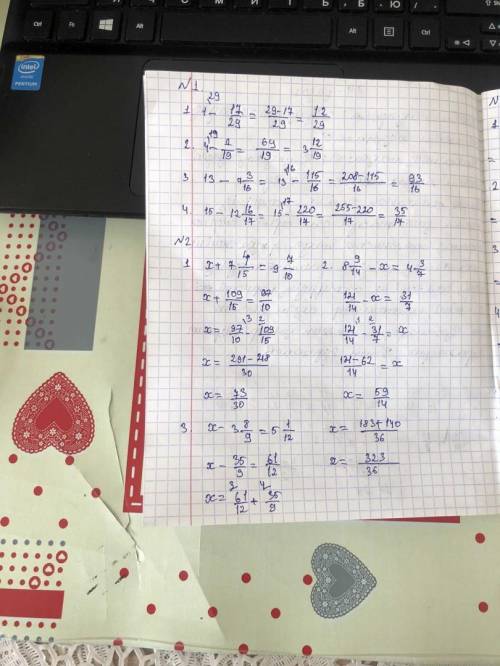 Fn
Ctrl
Alt
Alt
Ctrl
intel
inside
PENTIUM
№1
1. 1 - 17/29 = (29-17)/29 = 12/29
2. 4 - 7/19 = 69/19 = 3 12/19
3 13 - 7 3/16 = 13 - 115/16 = (208-115)/16 = 93/16
4. 15 - 12 16/17 = 15 - 220/17 = (255-220)/17 = 35/17
№2
1 x + 7 4/15 = 9 7/10
x + 109/15 = 97/10
x = 97/10 - 109/15
x = (291-218)/30
x = 73/30
2. 8 9/14 - x = 4 3/7
121/14 - x = 31/7
121/14 - 31/7 = x
(121-62)/14 = x
x = 59/14
3. x - 3 8/9 = 5 1/12
x - 35/9 = 61/12
x = 61/12 + 35/9
x = (183+140)/36
x = 323/36